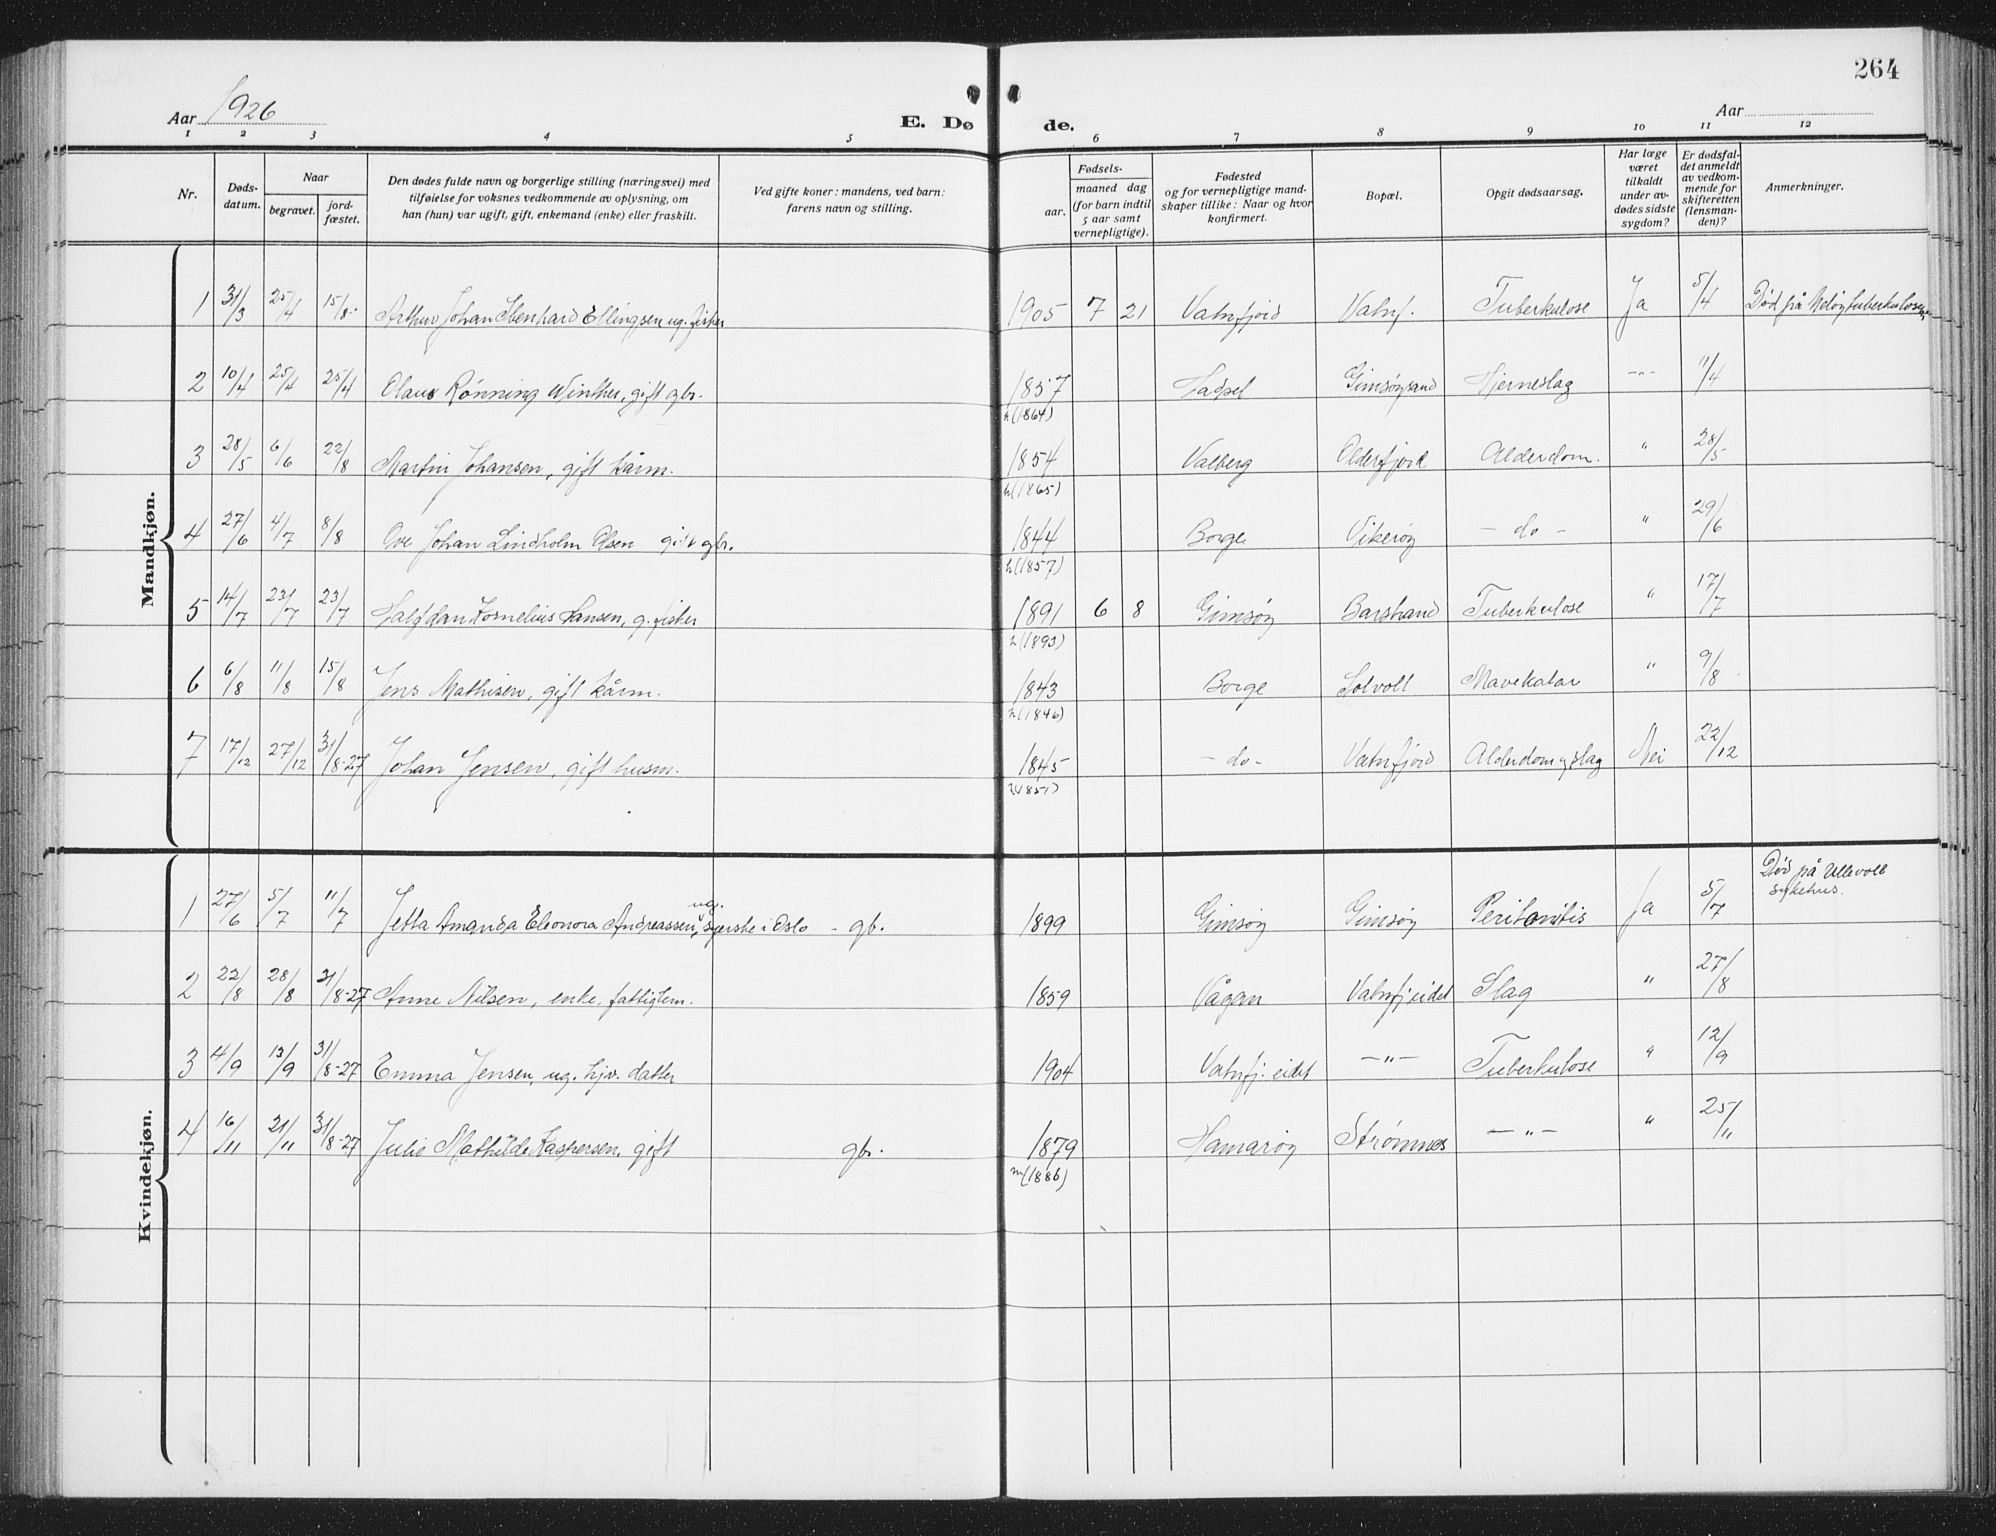 264
Aar 1926
E. Dø de.
Aar
1 2 3 4 5 6 7 8 9 10 11 12
Nr.
Døds-
datum.
Naar
begravet.
jord-
fæstet.
Den dødes fulde navn og borgerlige stilling (næringsvei) med
tilføielse for voksnes vedkommende av oplysning, om
han (hun) var ugift, gift, enkemand (enke) eller fraskilt.
Ved gifte koner: mandens, ved barn:
farens navn og stilling.
Fødsels-
aar.
maaned dag
(for barn indtil
5 aar samt
vernepligtige).
Fødested
og for vernepligtige mand-
skaper tillike: Naar og hvor
konfirmert.
Bopæl.
Opgit dødsaarsag.
Har læge
været
tilkaldt
under av-
dødes sidste
sygdom?
Er dødsfal-
det anmeldt
av vedkom-
mende for
skifteretten
(lensman-
den)?
Anmerkninger.
Mandkjøn.
1 31/3 25/4 15/8 Arthur Johan Ebenhard Ellingsen ug. fisker 1905 7 21 Vatnfjord Vatnf. Tuberkulose Ja 5/4 Død på
2 10/4 25/4 25/4 Olaus Rønning Winther, gift gbr. 1857 Hadsel Gimsøysand Hjerneslag -"- 11/4
h(1864)
3 28/5 6/6 22/8 Martin Johansen, gift kårm. 1854 Valberg Olderfjord Alderdom. " 28/5
h(1865)
4 27/6 4/7 8/8 Ove Johan Lindholm Olsen gift gbr. 1844 Borge Vikerøy - do - " 29/6
h(1857)
5 14/7 23/7 23/7 Halfdan Kornelius Hansen, g. fisker 1891 6 8 Gimsøy Barstrand Tuberkulose " 17/7
h(1893)
6 6/8 11/8 15/8 Jens Mathisen, gift kårm. 1843 Borge Solvoll Mavekatar " 9/8
h(1846)
7 17/12 27/12 31/8-27 Johan Jensen, gift husm. 1845 - do - Vatnfjord Alderdom og slag Nei 22/12
h(1851)
Kvindekjøn.
1 27/6 5/7 11/7 Jetta Amanda Eleonora Andreassen, ug. syerske i Oslo - gb. 1899 Gimsøy Gimsøy Peritonitis Ja 5/7 Død på Ullevoll
sykehus.
2 22/8 28/8 31/8-27 Anne Nilsen, enke, fattiglem. 1859 Vågan Vatnfj.eidet Slag " 27/8
3 4/9 13/9 31/8-27 Emma Jensen, ug. hjv. datter 1904 Vatnfj. eidet -"- Tuberkulose " 12/9
4 16/11 21/11 31/8-27 Julie Mathilde Kaspersen, gift gbr. 1879 Hamarøy Strømnes -"- " 25/11
m(1886)